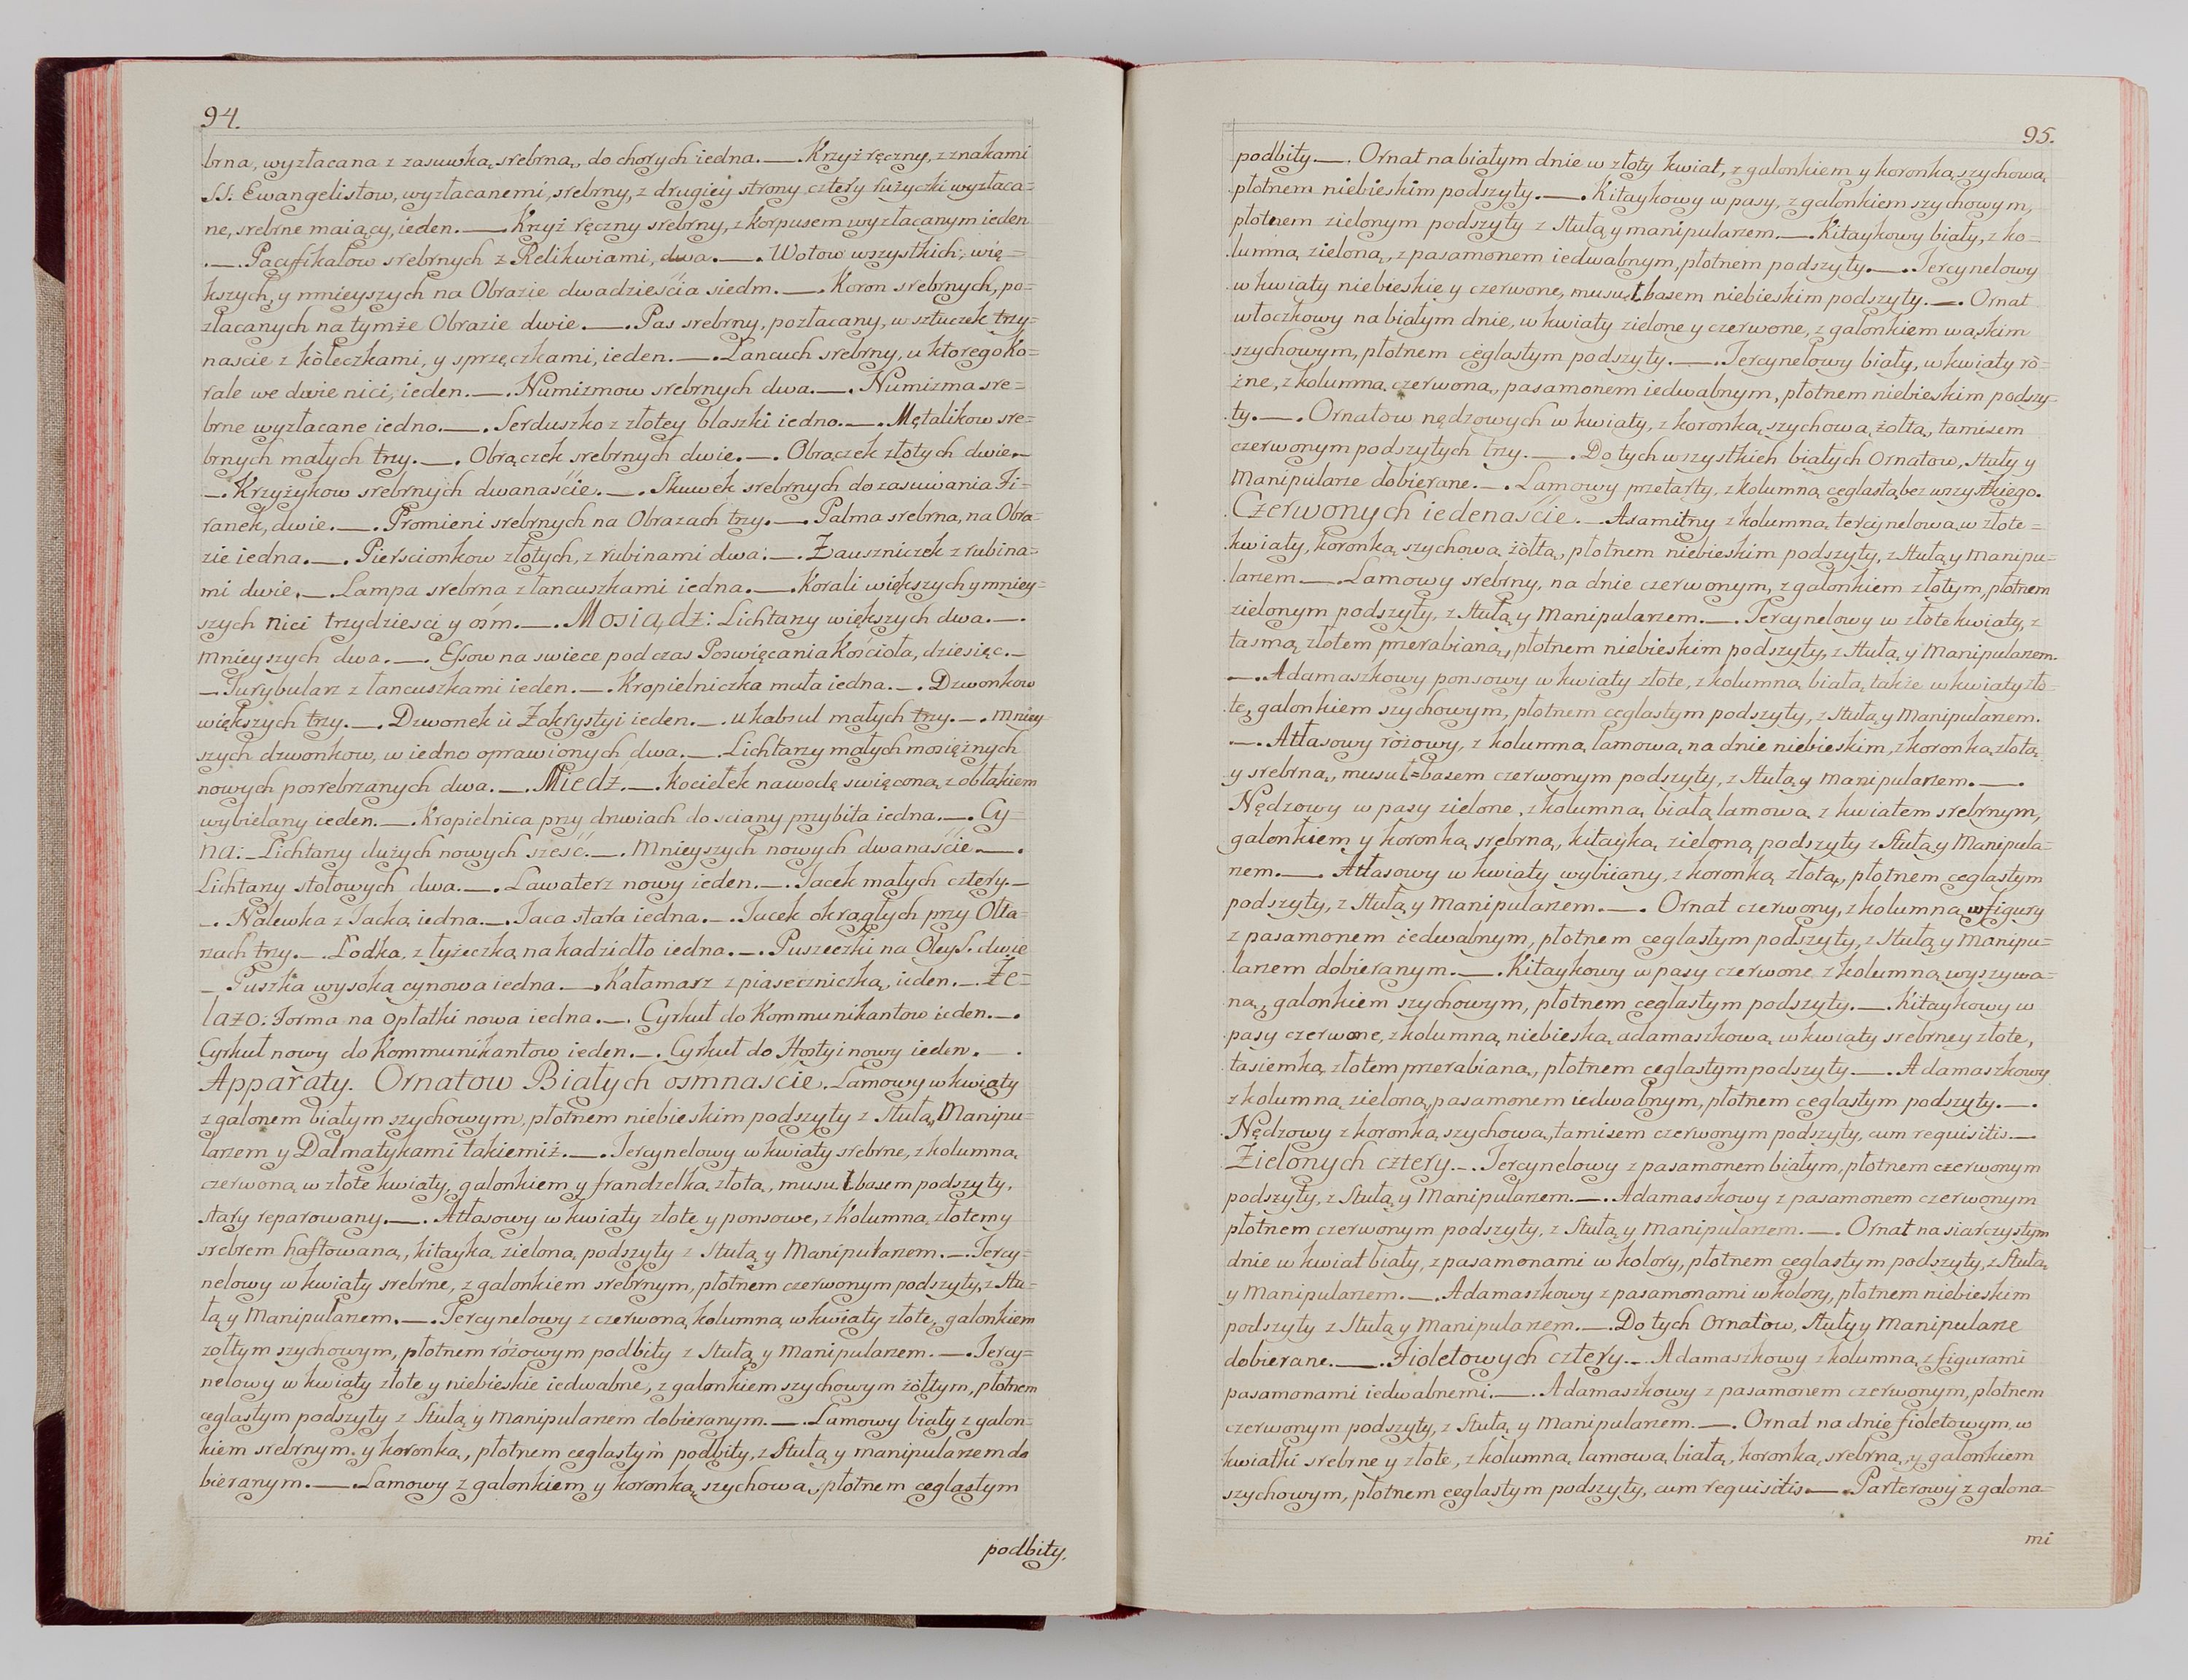 94.
brna, wyzłacana z zasuwką srebrną, do chorych iedna.—. Krzyż ręczny, z znakami
SS: Ewangelistow, wyzłacanemi, srebrny, z drugiey strony cztery rużyczki wyzłaca=
ne, srebrne maiący, ieden.—. Krzyż ręczny srebrny, z korpusem wyzłacanym ieden
.—. Pacyfikałow srebrnych z Relikwiami, dwa.—. Wotow wszystkich, wię=
kszych, y mnieyszych na Obrazie dwadzieścia siedm.—. Koron srebrnych, po=
złacanych na tymże Obrazie dwie.—. Pas srebrny, pozłacany, w sztuczek trzy=
nascie z kòłeczkami, y sprzęczkami, ieden.—. Łancuch srebrny, u ktorego Ko=
rale we dwie nici, ieden.—. Numizmow srebrnych dwa.—. Numizma sre=
brne wyzłacane iedno.—. Serduszko z złotey blaszki iedno.—. Mętalikow sre=
brnych małych trzy.—. Obrączek srebrnych dwie.—. Obrączek złotych dwie.—
—. Krzyżykow srebrnych dwanaście.—. Skuwek srebrnych do zasuwania Fi=
ranek, dwie.—. Promieni srebrnych na Obrazach trzy.—. Palma srebrna, na Obra=
zie iedna.—. Pierscionkow złotych, z rubinami dwa.—. Zauszniczek z rubina=
mi dwie.—. Lampa srebrna z łancuszkami iedna.—. Korali większych y mniey=
szych nici trzydziesci y ośm.—. Mosiądz: Lichtarzy większych dwa.—.
Mnieyszych dwa.—. Essow na swiece podczas Poswięcania Kościoła, dziesięc.—
—. Turybularz z łancuszkami ieden.—. Kropielniczka mała iedna.—. Dzwonkow
większych trzy.—. Dzwonek u Zakrystyi ieden.—. u kabzul małych trzy.—. Mniey
szych dzwonkow, w iedno oprawionych dwa.—. Lichtarzy małych mosiężnych
nowych posrebrzanych dwa.—. Miedź.—. Kociełek na wodę swięconą z obłąkiem
wybielany ieden.—. Kropielnica przy drzwiach do sciany przybita iedna.—. Cy=
na:—Lichtarzy dużych nowych sześć.—. Mnieyszych nowych dwanaście.—.
Lichtarzy stołowych dwa.—. Lawaterz nowy ieden.—. Tacek małych cztery.—
—. Nalewka z Tacką iedna.—. Taca stara iedna.—. Tacek okrągłych przy Ołta=
rzach trzy.—. Łodka, z łyżeczką na kadzidło iedna.—. Puszeczki na Oley S. dwie
— Puszka wysoka cynowa iedna.—. Kałamarz z piaseczniczką, ieden.—. Że=
lazo: Forma na opłatki nowa iedna.—. Cyrkuł do Kommunikantow ieden.—.
Cyrkuł nowy do Kommunikantow ieden.—. Cyrkuł do Hostyi nowy ieden.—.
Apparaty. Ornatow Białych ośmnaście. Lamowy w kwiaty
z galonem białym szychowym, płotnem niebieskim podszyty z Stułą, Manipu=
larzem y Dalmatykami takiemiż.—. Tercynelowy w kwiaty srebrne, z kolumną
czerwoną w złote kwiaty, galonkiem y frandzelką złotą, musułbasem podszyty,
stary reparowany.—. Atłasowy w kwiaty złote y ponsowe, z Kolumną złotem y
srebrem haftowaną, kitayką zieloną podszyty z Stułą y Manipularzem.—. Tercy=
nelowy w kwiaty srebrne, z galonkiem srebrnym, płotnem czerwonym podszyty, z Stu=
łą y Manipularzem.—. Tercynelowy z czerwoną kolumną w kwiaty złote, galonkiem
żołtym szychowym, płotnem różowym podbity z Stułą y Manipularzem.—. Tercy=
nelowy w kwiaty złote y niebieskie iedwabne, z galonkiem szychowym żółtym, płotnem
ceglastym podszyty z Stułą y Manipularzem dobieranym.—. Lamowy biały z galon=
kiem srebrnym y koronką, płotnem ceglastym podbity, z Stułą y manipularzem do
bieranym.—. Lamowy z galonkiem y koronką szychową, płotnem ceglastym
podbity,
95.
podbity.—. Ornat na białym dnie w złoty kwiat, z galonkiem y koronką szychową,
płotnem niebieskim podszyty.—. Kitaykowy w pasy, z galonkiem szychowym,
płotnem zielonym podszyty z Stułą y manipularzem.—. Kitaykowy biały, z ko=
lumną zieloną, z pasamonem iedwabnym, płotnem podszyty.—. Tercynelowy
w kwiaty niebieskie y czerwone, musułbasem niebieskim podszyty.—. Ornat
włoczkowy na białym dnie, w kwiaty zielone y czerwone, z galonkiem wąskim
szychowym, płotnem ceglastym podszyty.—. Tercynelowy biały, w kwiaty rò=
żne, z kolumną czerwoną, pasamonem iedwabnym, płotnem niebieskim podszy=
ty.—. Ornatow nędzowych w kwiaty, z koronką szychową żołtą, tamisem
czerwonym podszytych trzy.—. Do tych wszystkich białych Ornatow, Stuły y
Manipularze dobierane.—. Lamowy przetarty, z kolumną ceglastą bez wszystkiego.
Czerwonych iedenaście.—Axamitny z kolumną tercynelową w złote=
kwiaty, koronką szychową żòłtą, płotnem niebieskim podszyty, z Stułą y Manipu=
larzem.—. Lamowy srebrny, na dnie czerwonym, z galonkiem złotym, płotnem
zielonym podszyty, z Stułą y Manipularzem.—. Tercynelowy w złote kwiaty, z
tasmą złotem przerabianą, płotnem niebieskim podszyty, z Stułą y Manipularzem.
—. Adamaszkowy ponsowy w kwiaty złote, z kolumną białą, także w kwiaty zło=
te, galonkiem szychowym, płotnem ceglastym podszyty, z Stułą y Manipularzem.
—. Atłasowy ròżowy, z kolumną lamową, na dnie niebieskim, z koronką złotą
y srebrną, musuł=basem czerwonym podszyty, z Stułą y Manipularzem.—.
Nędzowy w pasy zielone, z kolumną białą lamową z kwiatem srebrnym,
galonkiem y koronką srebrną, kitayką zieloną podszyty z Stułą y Manipula=
rzem.—. Atłasowy w kwiaty wybiiany, z koronką złotą, płotnem ceglastym
podszyty, z Stułą y Manipularzem.—. Ornat czerwony, z kolumną w figury
z pasamonem iedwabnym, płotnem ceglastym podszyty, z Stułą y Manipu=
larzem dobieranym.—. Kitaykowy w pasy czerwone z kolumną wyszywa=
ną, galonkiem szychowym, płotnem ceglastym podszyty.—. Kitaykowy w
pasy czerwone, z kolumną niebieską adamaszkową w kwiaty srebrne y złote,
tasiemką złotem przerabianą, płotnem ceglastym podszyty.—. Adamaszkowy
z kolumną zieloną, pasamonem iedwabnym, płotnem ceglastym podszyty.—.
Nędzowy z koronką szychową, tamisem czerwonym podszyty, cum requisitis.—
Zielonych cztery.—. Tercynelowy z pasamonem białym, płotnem czerwonym
podszyty, z Stułą y Manipularzem.—. Adamaszkowy z pasamonem czerwonym
płotnem czerwonym podszyty, z Stułą y Manipularzem.—. Ornat na siarczystym
dnie w kwiat biały, z pasamonami w kolory, płotnem ceglastym podszyty, z Stułą
y Manipularzem.—. Adamaszkowy z pasamonami w kolory, płotnem niebieskim
podszyty z Stułą y Manipularzem.—. Do tych Ornatòw, Stuły y Manipularze
dobierane.—. Fioletowych cztery.—. Adamaszkowy z kolumną z figurami
pasamonami iedwabnemi.—. Adamaszkowy z pasamonem czerwonym, płotnem
czerwonym podszyty, z Stułą y Manipularzem.—. Ornat na dnie fioletowym, w
kwiatki srebrne y złote, z kolumną lamową białą, koronką srebrną, y galonkiem
szychowym, płotnem ceglastym podszyty, cum requisitis.—. Parterowy z galona=
mi